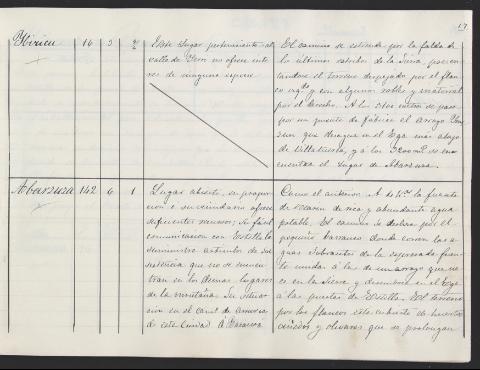 17.
Yviricu 16 3 2
Este Lugar perteneciente al
valle de Yerri no ofrece inte
res de ninguna especie
El camino se estiende por la falda de
los últimos estribos de la Sierra, presen
tandose el terreno despejado por el flan
co izqdo y con algunos robles y matorral
por el derecho. A los 5100 metros se pasa
por un puente de fábrica el arroyo
que desagua en el Ega mas abajo
de Villatuerta, y á los 3200 ms se en
cuentra el Lugar de Abarzuza.
Abarzuza 142 6 1
Lugar abierto, en propor
cion á su vecindario ofrece
suficientes recursos; su fácil
comunicacion con Estella le
suministra articulos de sub
sistencia que no se encuen
tran en los demas lugares
de la montaña. Su situa
cion en el de
de esta Ciudad á
Como el anterior. A de la fuente
de de rica y abundante agua
potable. El camino se desliza por el
pequeño barranco donde corren las a
guas sobrantes de la espresada fuen
te unida á las de un arroyo que na
ce en la Sierra y desemboca en el Ega
á las puertas de Estella. El terreno
por los flancos está cubierto de huertas
viñedos y olivares que se prolongan